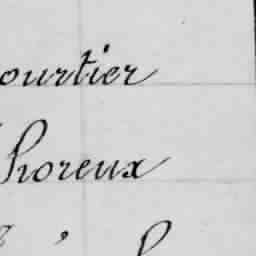 ourtier
Thoreux